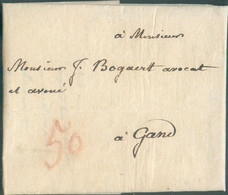 à Monsieur
Monsieur J. Bogaert avocat
et avoué
50
à Gand